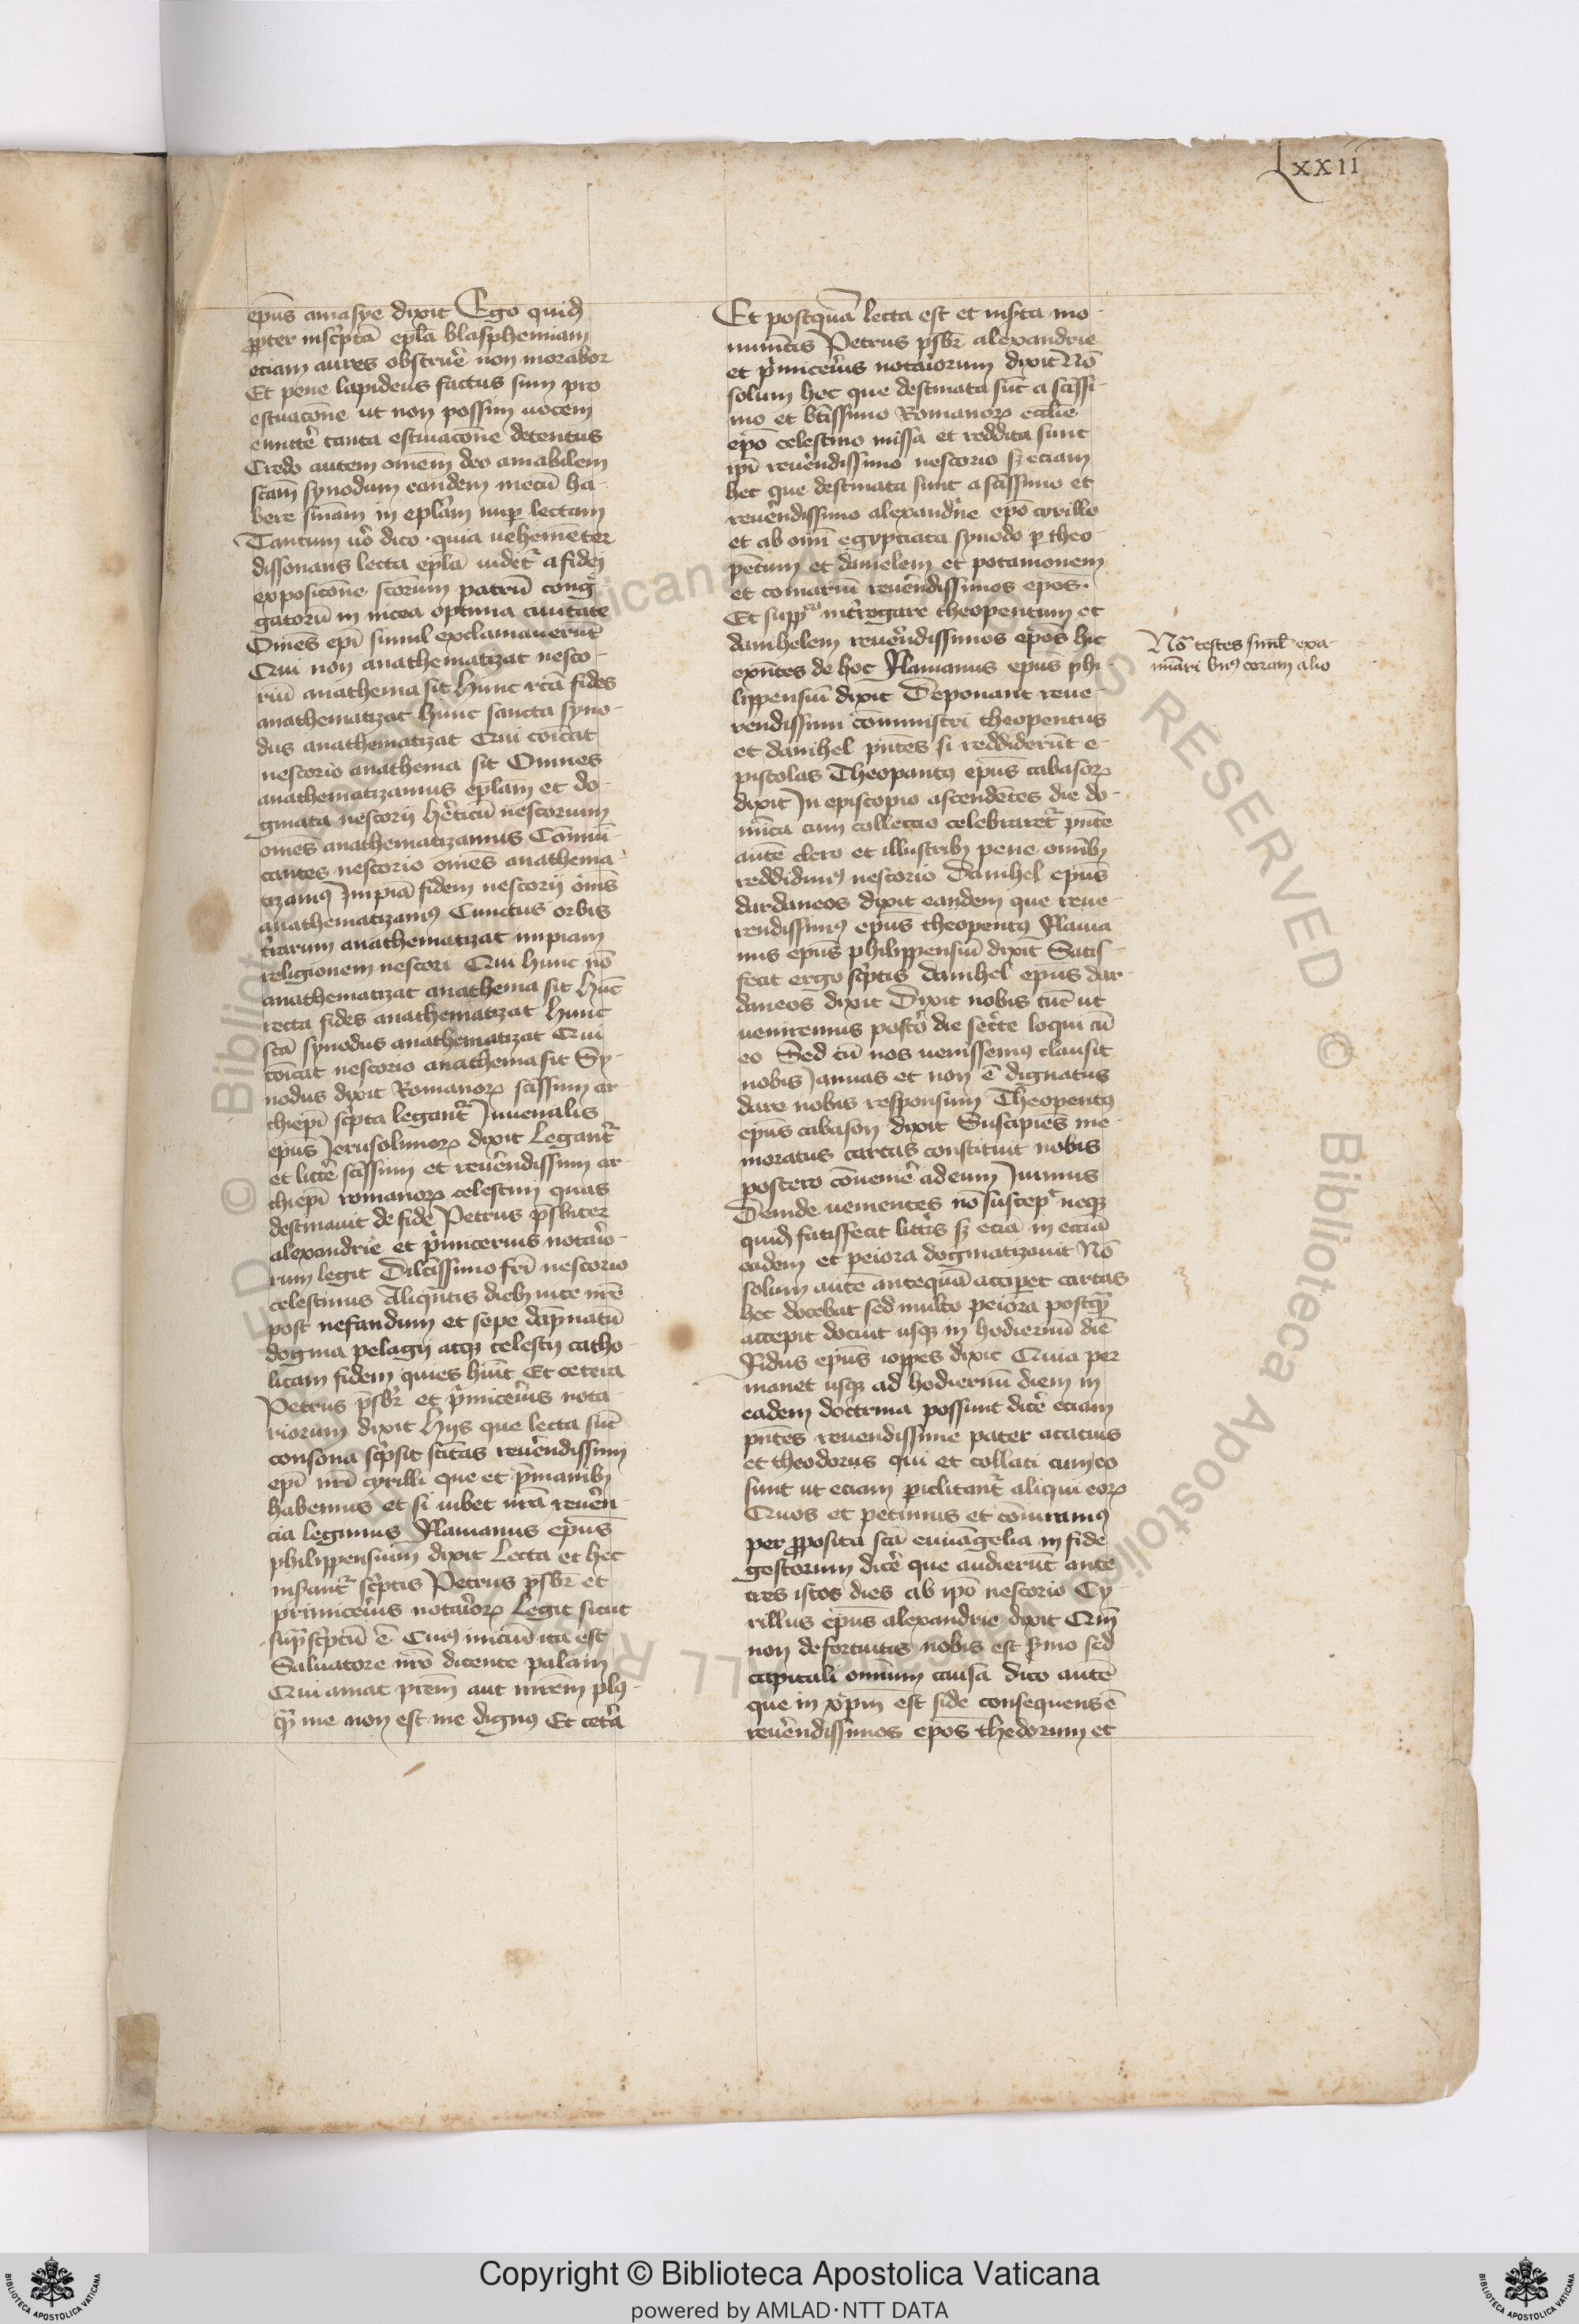 Lxxii
epūs amasye dixit Ego quid
ꝓpter inscptā eplā blasphemiam
eciam aures obstruē non morabor
Et pene lapideus factus sum pro
estuacōne ut non possim uocem
emittē tanta estuacōne detentus
Credo autem omēm deo amabilem
scām synodum eandem mecū ha-
bere sniam in eplām nuꝑ lectam
Tantum uō dico quia uehemēter
dissonans lecta eplā uidetᷣ a fidej
exposicōne scōrum patrū cong
gatorū in nicea optima ciuitate
Omēs epī simul exclamauerūt
Qui non anathematizat nesto-
riū anathema sit Hunc rcā fides
anathematizat hunc sancta syno-
dus anathematizat Qui coīcat
nestorio anathema sit Omnes
anathematizamus eplām et do-
gmata nestorij hēticū nestorium
omēs anathematizamus Cōmūi-
cantes nestorio omēs anathema-
tizamꝰ Impiā fidem nestorij omīs
anathematizamꝰ Cunctus orbis
tr̄arum anathematizat impiam
religionem nestori Qui hunc nō
anathematizat anathema sit Hūc
recta fides anathematizat Hunc
scā synodus anathematizat Qui
coīcat nestorio anathema sit Sy-
nodus dixit Romanoꝝ scīssimi ar-
chiepī scpta legantᷣ Iuuenalis
epūs Jerusolimoꝝ dixit Legantᷣ
et littē scīssimi et reuēndissimi ar-
chiepī romanoꝝ celestini quas
destinauit de fide Petrus psbiter
alexandrie et pᷤmicerius notaīo-
rum legit Dilcīssimo frī nestorio
celestinus Aliqntis diebꝫ uite nrē
post nefandum et sepe dāpnatū
dogma pelagij atqꝫ celestij catho-
licam fidem quies hūit Et cetera
Petrus psbr̄ et pᷤmiceīus nota-
riorum dixit Hijs que lecta sūt
consona scpsit scītas reuēndissimi
epī nrī cyrilli que et p̄manibꝫ
habemus et si iubet ur̄a reuēn-
cia legimus Flauianus epūs
philippensium dixit Lecta et hec
insantᷣ scptis Petrus psbr̄ et
primiceīus notaīoꝝ Legit sicut
supᷓscptū ē Cuiꝰ iniciū ita est
Saluatore nrō dicente palam
Qui amat prēm aut mrēm plꝰ
qᷓ me non est me dignꝰ Et cetᷓa
Et postquā lecta est et insta mo-
numētis Petrus psbr̄ alexandrie
et pᷤmiceīus notaiorum dixit Nō
solum hec que destinata sūt a scīssi-
mo et btīssimo Romanoꝝ ecclīe
epō celestino missa et reddita sunt
ipī reuēndissimo nestorio sꝫ eciam
hec que destinata sunt a scīssimo et
reuēndissimo alexandrie epō cyrillo
et ab omī egyptiaca synodo ꝑ theo-
pētum et danielem et potamonem
et comariū reuēndissimos epōs.
Et suppᷓ introgare theopentum et
danihelem reuēndissimos epōs hic
exntes de hoc Flauianus epūs phi-
lippensiū dixit Deponant reue-
rendissimi cōministri theopentus
et danihel pntēs si reddiderūt e-
pistolas Theopantꝰ epūs cabasoꝝ
dixit In episcopio ascendētes die do-
mīca cum collectio celebraretᷣ pntē
autē clero et illustribꝫ pene omībꝫ
reddidimꝰ nestorio Danihel epūs
dardaneos dixit eandem que reue-
rendissimꝰ epūs theopentꝰ Flauia
nus epūs philippensiū dixit Satis-
fecit ergo scptis danihel epūs dar-
daneos dixit Dixit nobis tūc ut
ueniremus postō die sectē loqui cū
eo Sed cū nos uenissemꝰ clausit
nobis ianuas et non ē dignatus
dare nobis responsum Theopentꝰ
epūs cabason dixit Suscipiēs me-
moratus cartas constituit nobis
postero cōuenīē ad eum Iuimus
Deinde uenientes nō suscepᷣ neqꝫ
quid satisfecit littīs sꝫ eciā in ecciā
eadem et peiora dogmatizauit Nō
solum autē antequā acciꝑet cartas
hec docebat sed multo peiora postqᷓ
accepit docuit usqꝫ in hodiernū diē
Fidus epūs ioppes dixit Quia per
manet usqꝫ ad hodiernū diem in
eadem doctrina possunt dicē eciam
pntēs reuendissime pater acacius
et theodorus qui et collati cum eo
sunt ut eciam ꝑiclitantᷣ aliqui eoꝝ
Quos et petimus et cōiuramꝰ
per ꝓposita scā euuāngelia in fide
gestorum dicē que audierūt ante
tres istos dies ab ipō nestorio Cy-
rillus epūs alexandrie dixit Qm̄
non de fortuitis nobis est sꝫmo sed
capitali omnium causa dico autē
que in xpm̄ est fide consequens ē
reuēndissimos epōs thedorum et
Nō testes siml̄ exa-
mīari vnꝰ coram alio
Copyright © Biblioteca Apostolica Vaticana
powered by AMLAD·NTT DATA